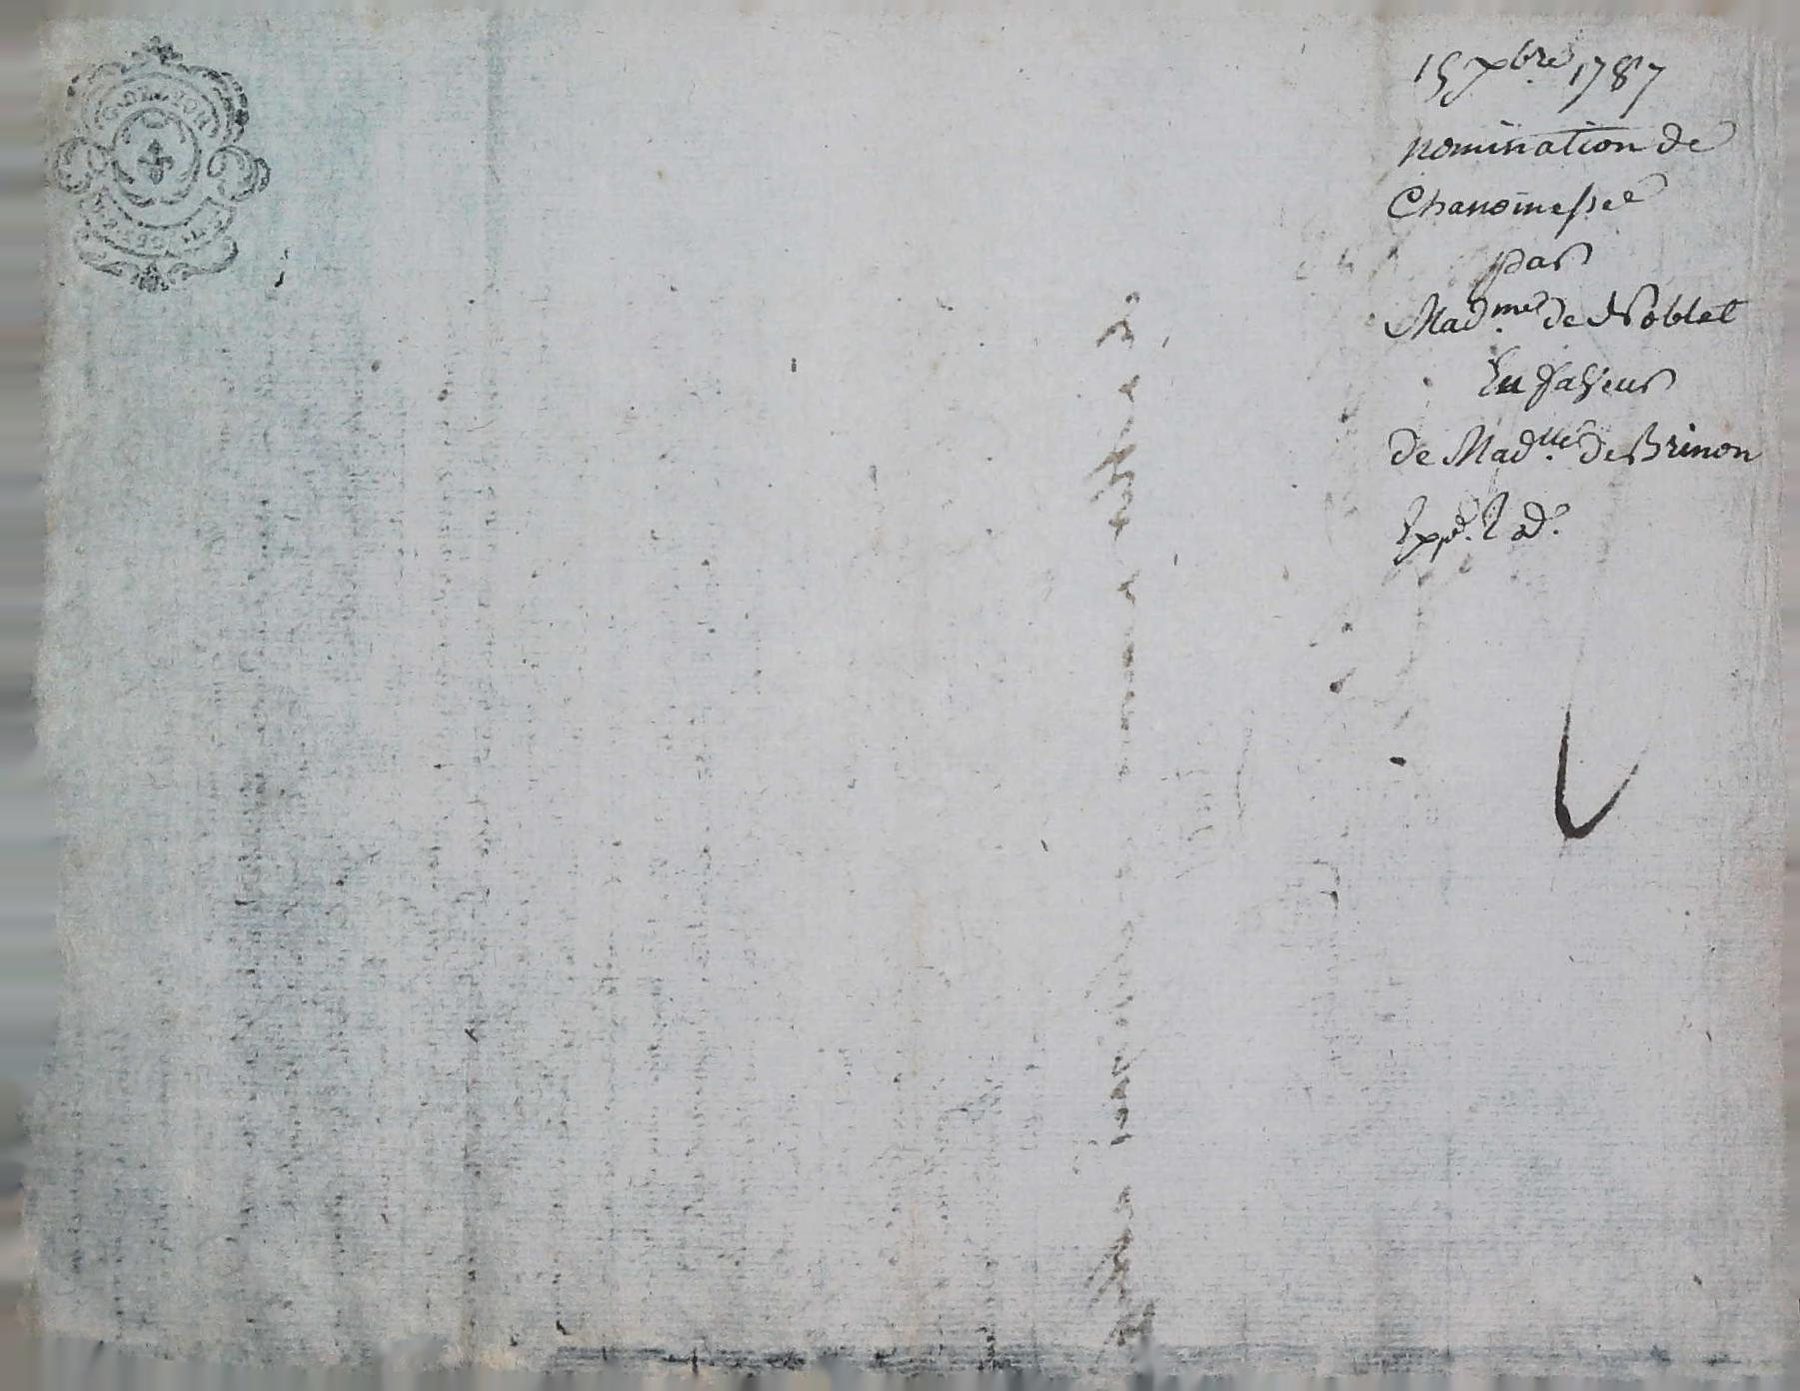 15 Xbre 1787
nomination de
Chanoinesse
par
Mad.me de Noblet
En faveur
de Mad.lle de Brinon
Exp.d